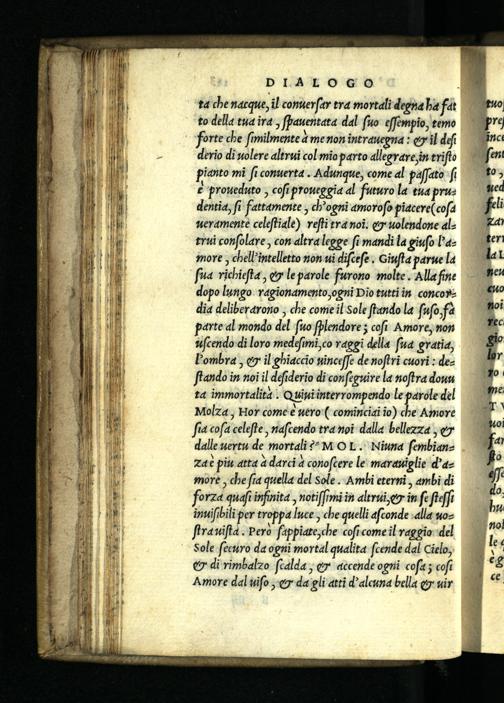 DIALOGO
ta che nacque, il conuersar tra mortali degna ha fat
to della tua ira, spauentata dal suo essempio, temo
forte che similmente à me non intrauegna: & il desi
derio di uolere altrui col mio parto allegrare, in tristo
pianto mi si conuerta. Adunque, come al passato si
è proueduto, cosi proueggia al futuro la tua pru=
dentia, si fattamente, ch'ogni amoroso piacere (cosa
ueramente celestiale) resti tra noi. & uolendone al=
trui consolare, con altra legge si mandi la giuso l'a=
more, chell'intelletto non ui discese. Giusta parue la
sua richiesta, & le parole furono molte. Alla fine
dopo lungo ragionamento, ogni Dio tutti in concor=
dia deliberarono, che come il Sole stando la suso, fà
parte al mondo del suo splendore; cosi Amore, non
uscendo di loro medesimi, co raggi della sua gratia,
l'ombra, & il ghiaccio uincesse de nostri cuori: de=
stando in noi il desiderio di conseguire la nostra douu
ta immortalità. Quiui interrompendo le parole del
Molza, Hor come è uero (cominciai io) che Amore
sia cosa celeste, nascendo tra noi dalla bellezza, &
dalle uertu de mortali? MOL. Niuna sembian=
za è piu atta à darci à conoscere le marauiglie d'a=
more, che sia quella del Sole. Ambi eterni, ambi di
forza quasi infinita, notissimi in altrui, & in se stessi
inuisibili per troppa luce, che quelli asconde alla uo=
stra uista. Però sappiate, che cosi come il raggio del
Sole securo da ogni mortal qualita scende dal Cielo,
& di rimbalzo scalda, & accende ogni cosa; cosi
Amore dal uiso, & da gli atti d'alcuna bella & uir